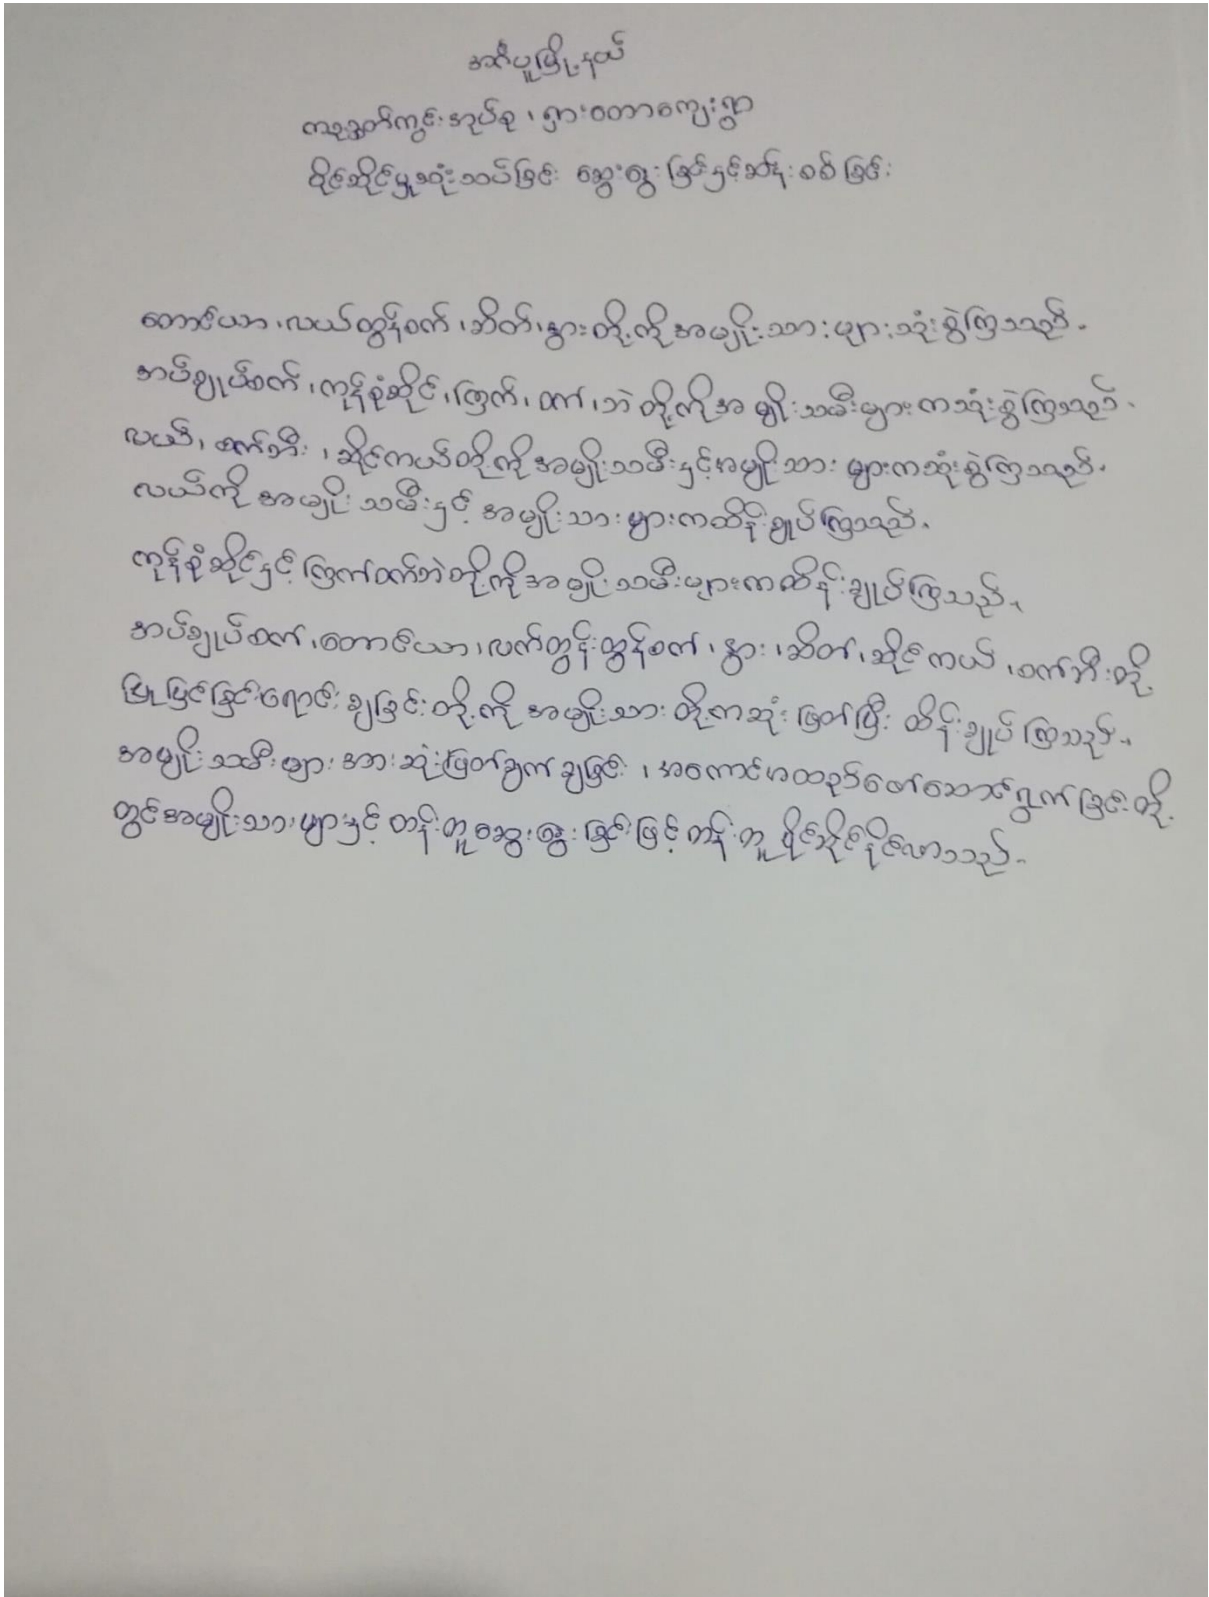 အင်္ဂပူမြို့နယ်
ကညွတ်ကွင်းအုပ်စု ၊ ရှားတောကျေးရွာ
ပိုင်ဆိုင်မှုသုံးသပ်ခြင်း ဆွေးနွေးခြင်းနှင့်ဆန်းစစ်ခြင်း
တောင်ယာ ၊ လယ်ထွန်စက် ၊ ဆိတ် ၊ နွားတို့ကိုအမျိုးသားများသုံးစွဲကြသည်။
အပ်ချုပ်စက် ၊ ကုန်စုံဆိုင် ၊ ကြက် ၊ ဝက် ၊ ဘဲတို့ကိုအမျိုးသမီးများကသုံးစွဲကြသည်။
လယ် ၊ စက်ဘီး ၊ ဆိုင်ကယ်တို့ကိုအမျိုးသမီးနှင့်အမျိုးသားများကသုံးစွဲကြသည်။
လယ်ကိုအမျိုးသမီးနှင့် အမျိုးသားများကထိန်းချုပ်ကြသည်။
ကုန်စုံဆိုင်နှင့်ကြက်ဝက်ဘဲတို့ကိုအမျိုးသမီးများကထိန်းချုပ်ကြသည်။
အပ်ချုပ်စက် ၊ တောင်ယာ ၊ လက်တွန်းထွန်စက် ၊ နွား ၊ ဆိတ် ၊ ဆိုင်ကယ် ၊ စက်ဘီးတို့
ပြုပြင်ခြင်းရောင်းချခြင်းတို့ကို အမျိုးသားတို့ကဆုံးဖြတ်ပြီး ထိန်းချုပ်ကြသည်။
အမျိုးသမီးများအားဆုံးဖြတ်ချက်ချခြင်း ၊ အကောင်အထည်ဖော်ဆောင်ရွက်ခြင်းတို့
တွင်အမျိုးသားများနှင့် တန်းတူဆွေးနွေးခြင်းဖြင့်တန်းတူပိုင်ဆိုင်နိုင်လာသည်။